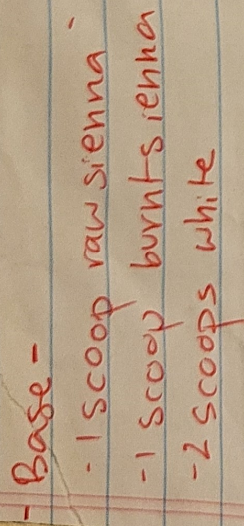 - Base -
- 1 scoop raw sienna -
- 1 scoop burnt sienna
- 2 scoops white